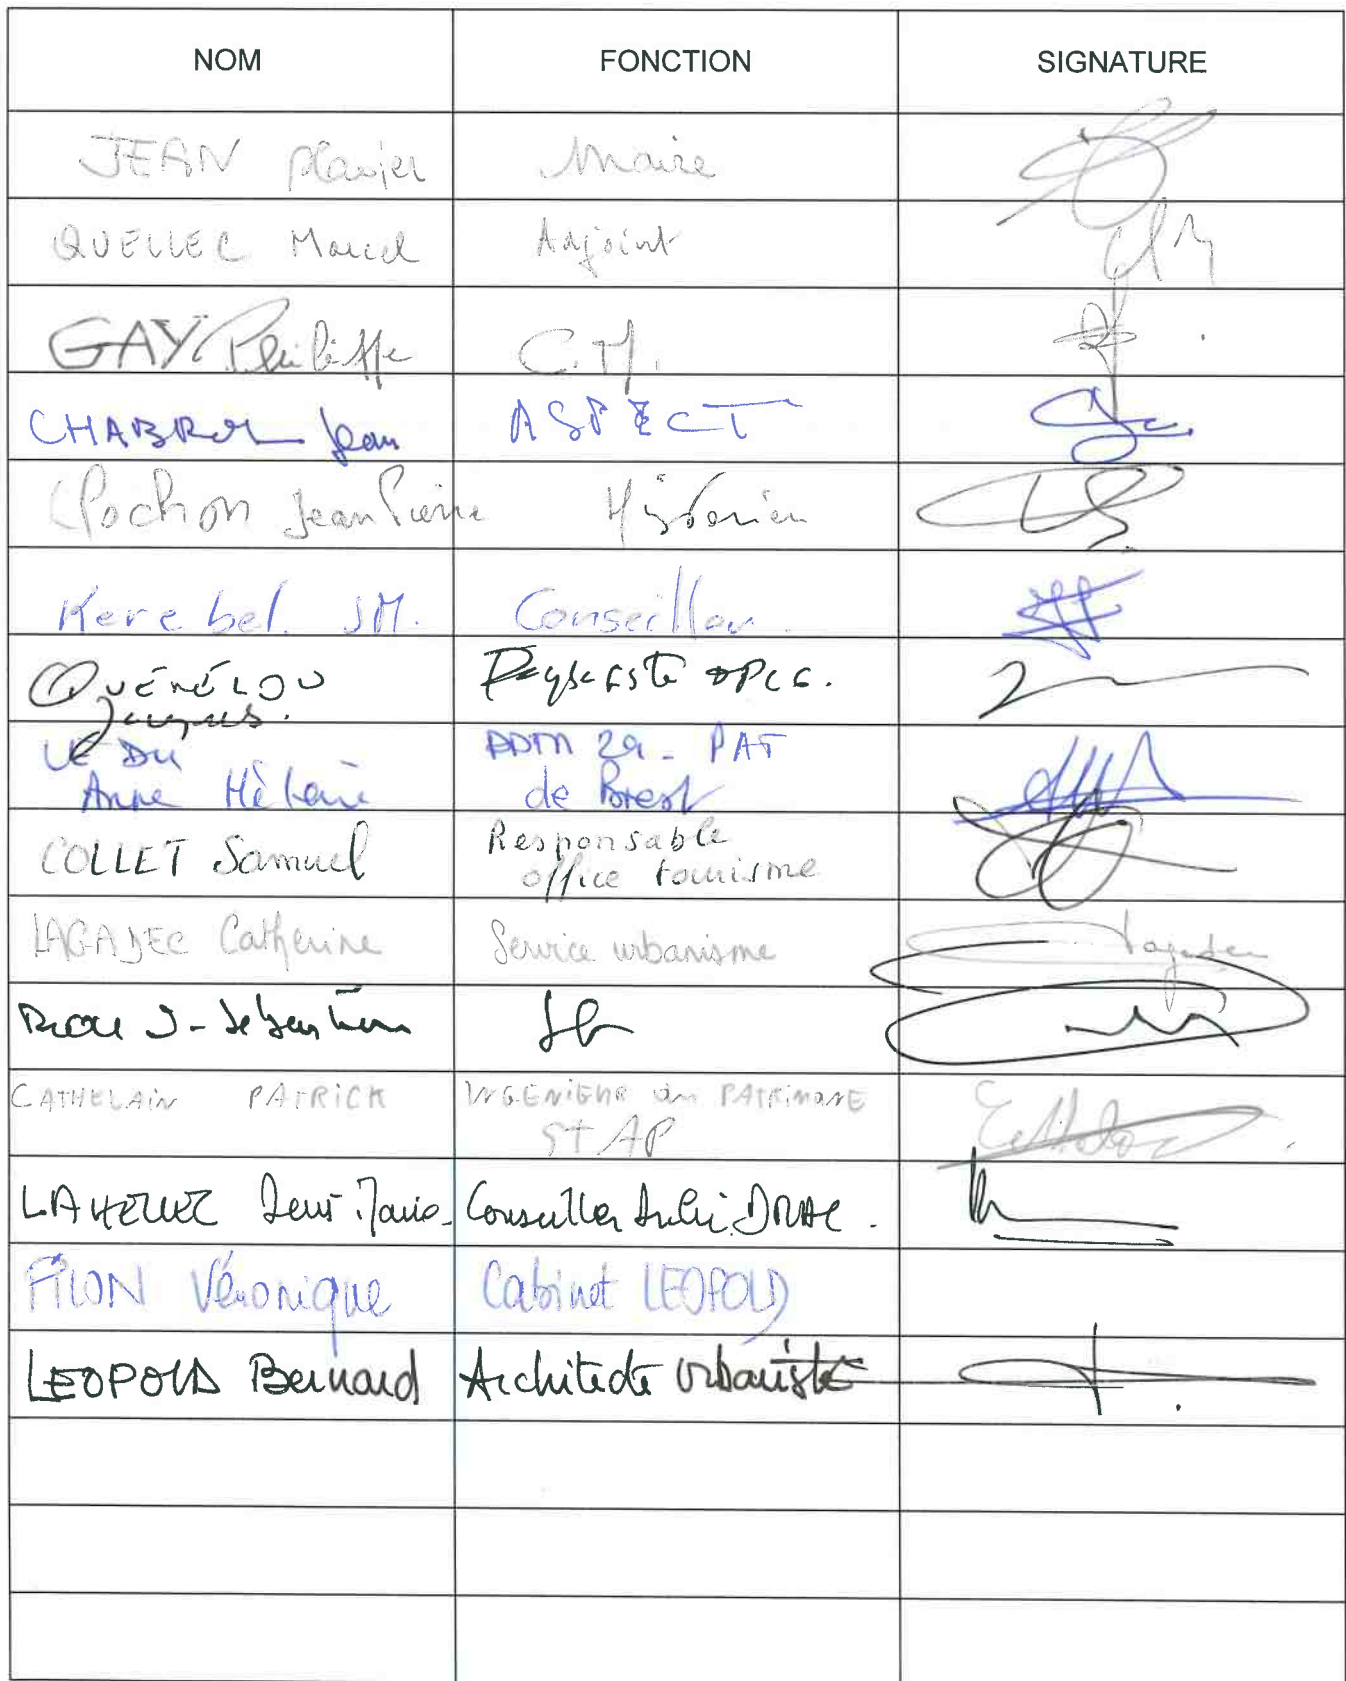 NOM FONCTION SIGNATURE
JEAN Maire
QUELLEC Marcel Adjoint
GAY Philippe C.M.
CHABROL Jean ASPECT
Pochon Jean Pierre Historien
Kerebel. JM. Conseiller.
QUÉNÉLOU
Jacques.
LE DU DDTM 29 - PAT
Anne Hélène de Brest
COLLET Samuel Responsable
office tourisme
LAGADEC Catherine Service urbanisme
Lagadec
J-Sébastien
CATHELAIN PATRICK INGENIEUR du PATRIMOINE
STAP
LAHELLEC Conseiller DRAC.
FILON Véronique Cabinet LEOPOLD
LEOPOLD Bernard Architecte Urbaniste